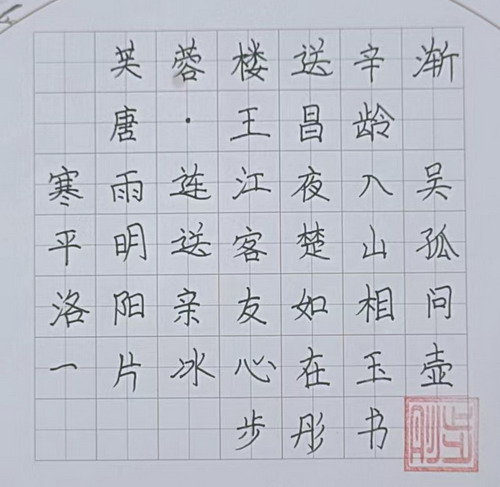 芙蓉楼送辛渐
唐·王昌龄
寒雨连江夜入吴
平明送客楚山孤
洛阳亲友如相问
一片冰心在玉壶
步彤书